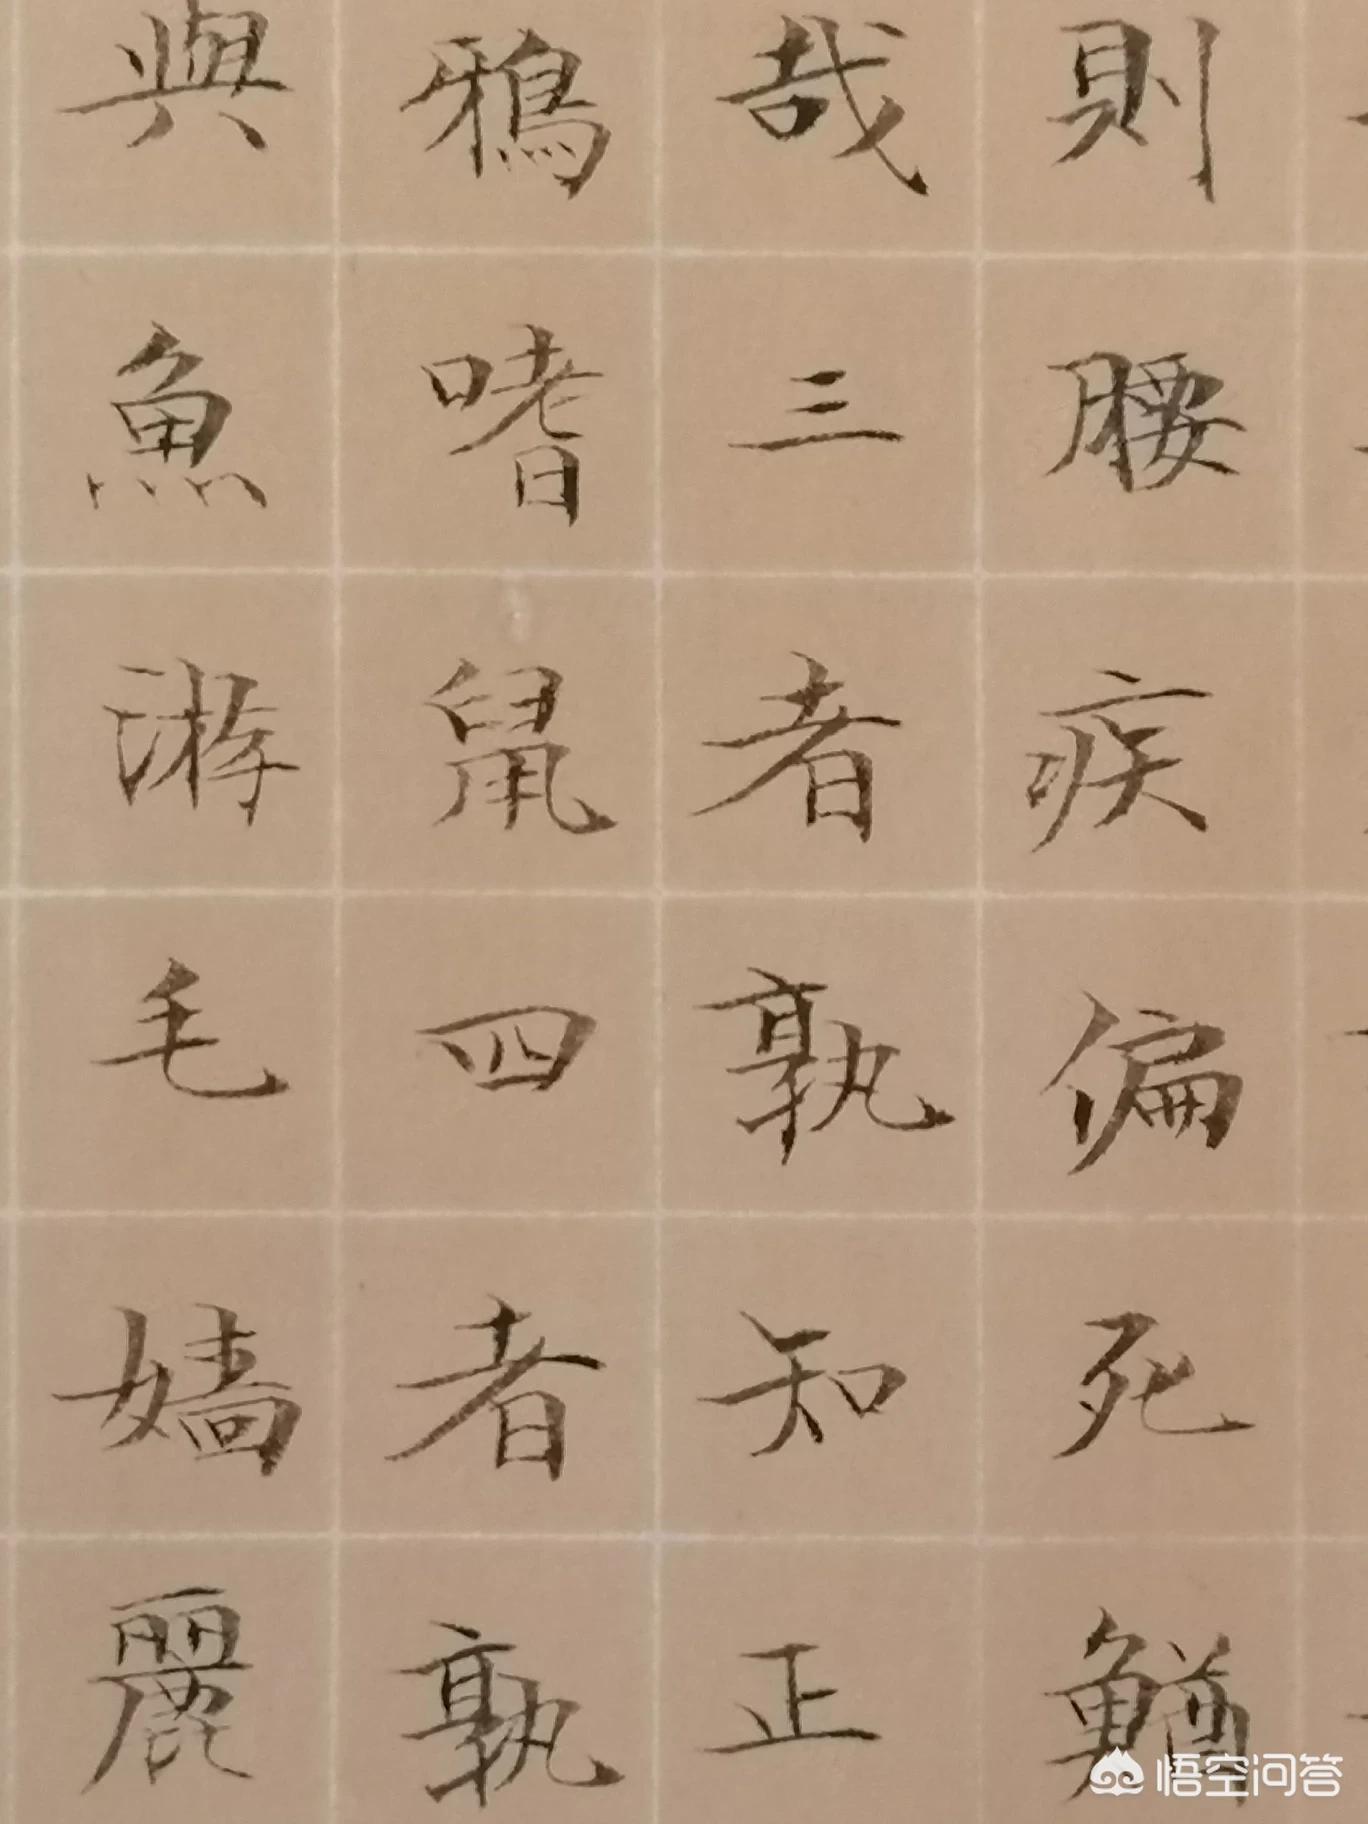 則腰疾偏死鰌
哉三者孰知正
鴉嗜鼠四者孰
與魚游毛嬙麗
悟空问答